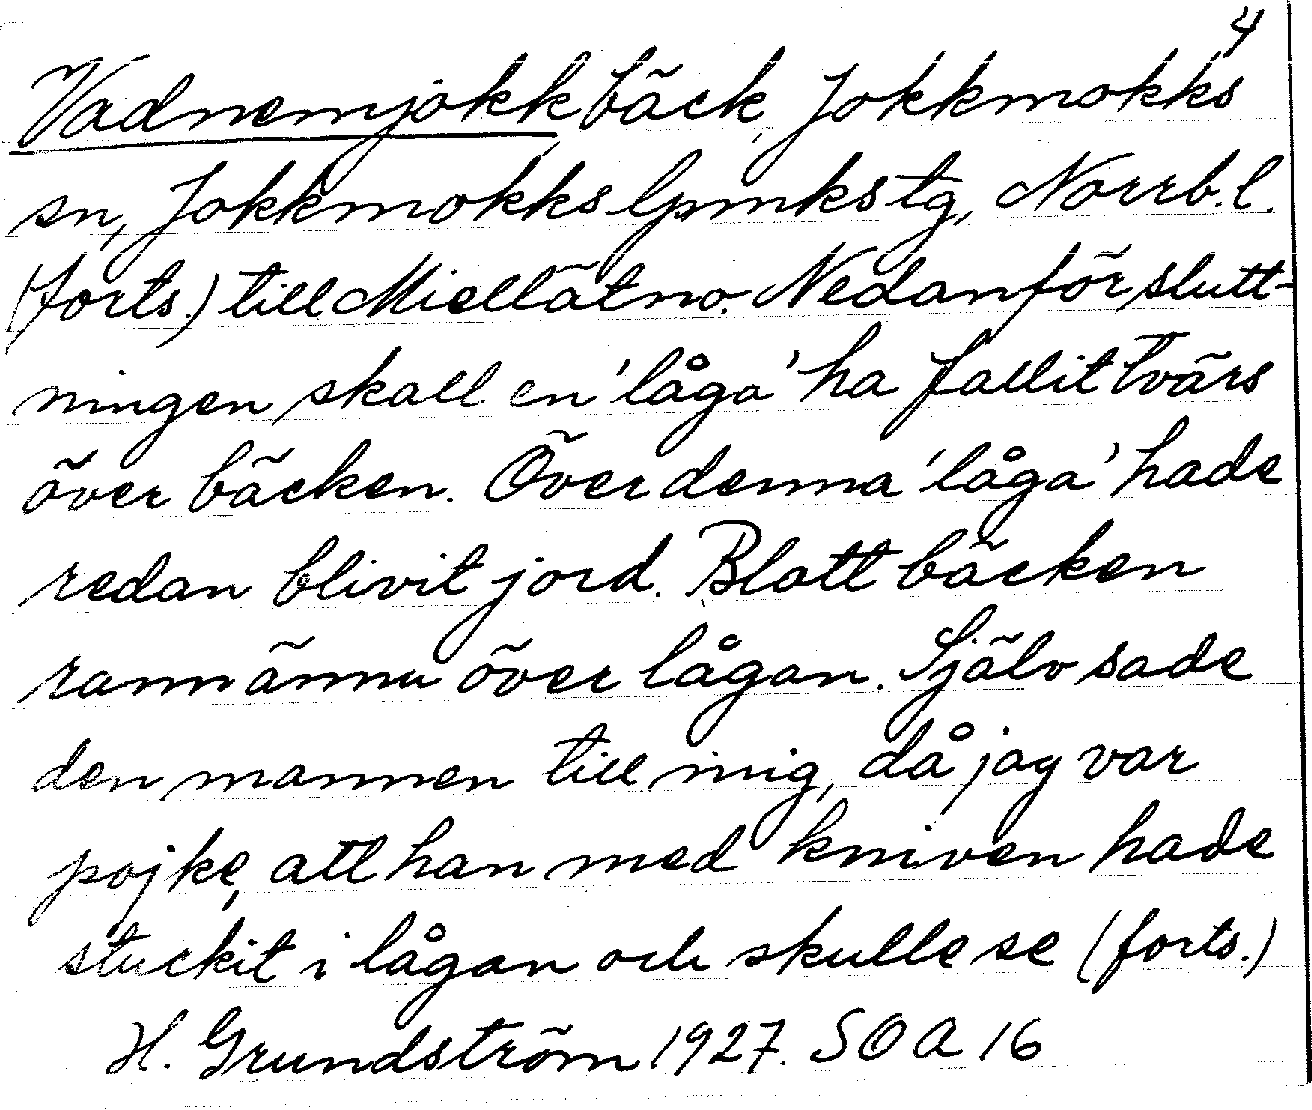 4
Vadnemjokk, bäck, Jokkmokks
sn, Jokkmokks lpmks tg, Norrb. l.
(forts.) till Miellätno. Nedanför slutt-
ningen skall en 'låga' ha fallit tvärs
över bäcken. Över denna 'låga' hade
redan blivit jord. Blott bäcken
rann ännu över lågan. Själv sade
den mannen till mig, då jag var
pojke, att han med kniven hade
stuckit i lågan och skulle se (forts.)
H. Grundström 1927. SOA 16